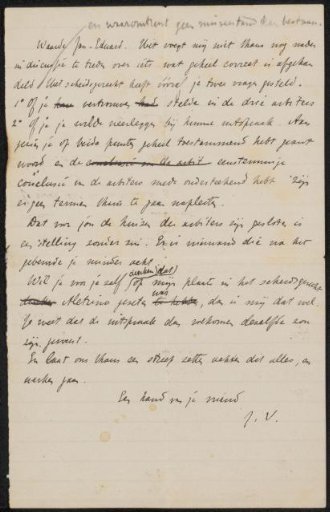 en waaromtrent geen misverstand kan bestaan.
Waarde Jan-Eduard. Het voegt mij niet thans nog nader
in discussie te treden over iets wat geheel correct is afgehan
deld. Het scheidsgerecht heeft vooraf je twee vragen gesteld.
1° Of je vertrouwen stelde in de drie arbiters
2° Of je je wilde neerleggen bij hunne uitspraak. Aan
gezien je op beide punten geheel toestemmend hebt geant
woord en de eenstemmige
conclusie en de arbiters mede onderteekend hebt zijn
er geen termen thans te gaan napleiten.
Dat voor jou de huizen der arbiters zijn gesloten is
een stelling zonder zin. Er is niemand die na het
gebeurde je minder acht.
Wil je voor je zelf denken dat op mijn plaats in het scheidsgerecht
Aletrino gezeten was, dan is mij dat wel.
Je weet dat de uitspraak dan volkomen dezelfde zou
zijn geweest.
En laat ons thans een streep zetten onder dat alles, en
werken gaan.
Een hand van je vriend
J. V.